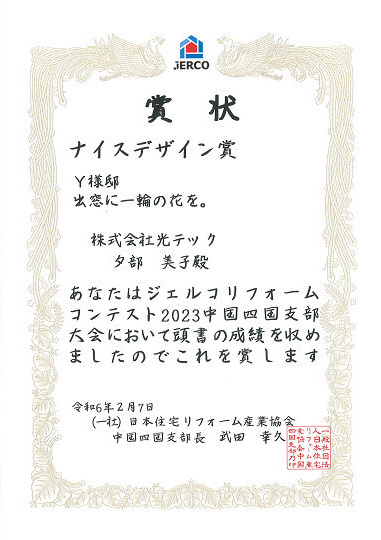 JERCO
賞状
ナイスデザイン賞
Y様邸
出窓に一輪の花を。
株式会社光テック
夕部 美子殿
あなたはジェルコリフォーム
コンテスト2023中国四国支部
大会において頭書の成績を収め
ましたのでこれを賞します
令和6年2月7日
(一社)日本住宅リフォーム産業協会
中国四国支部長 武田 幸久